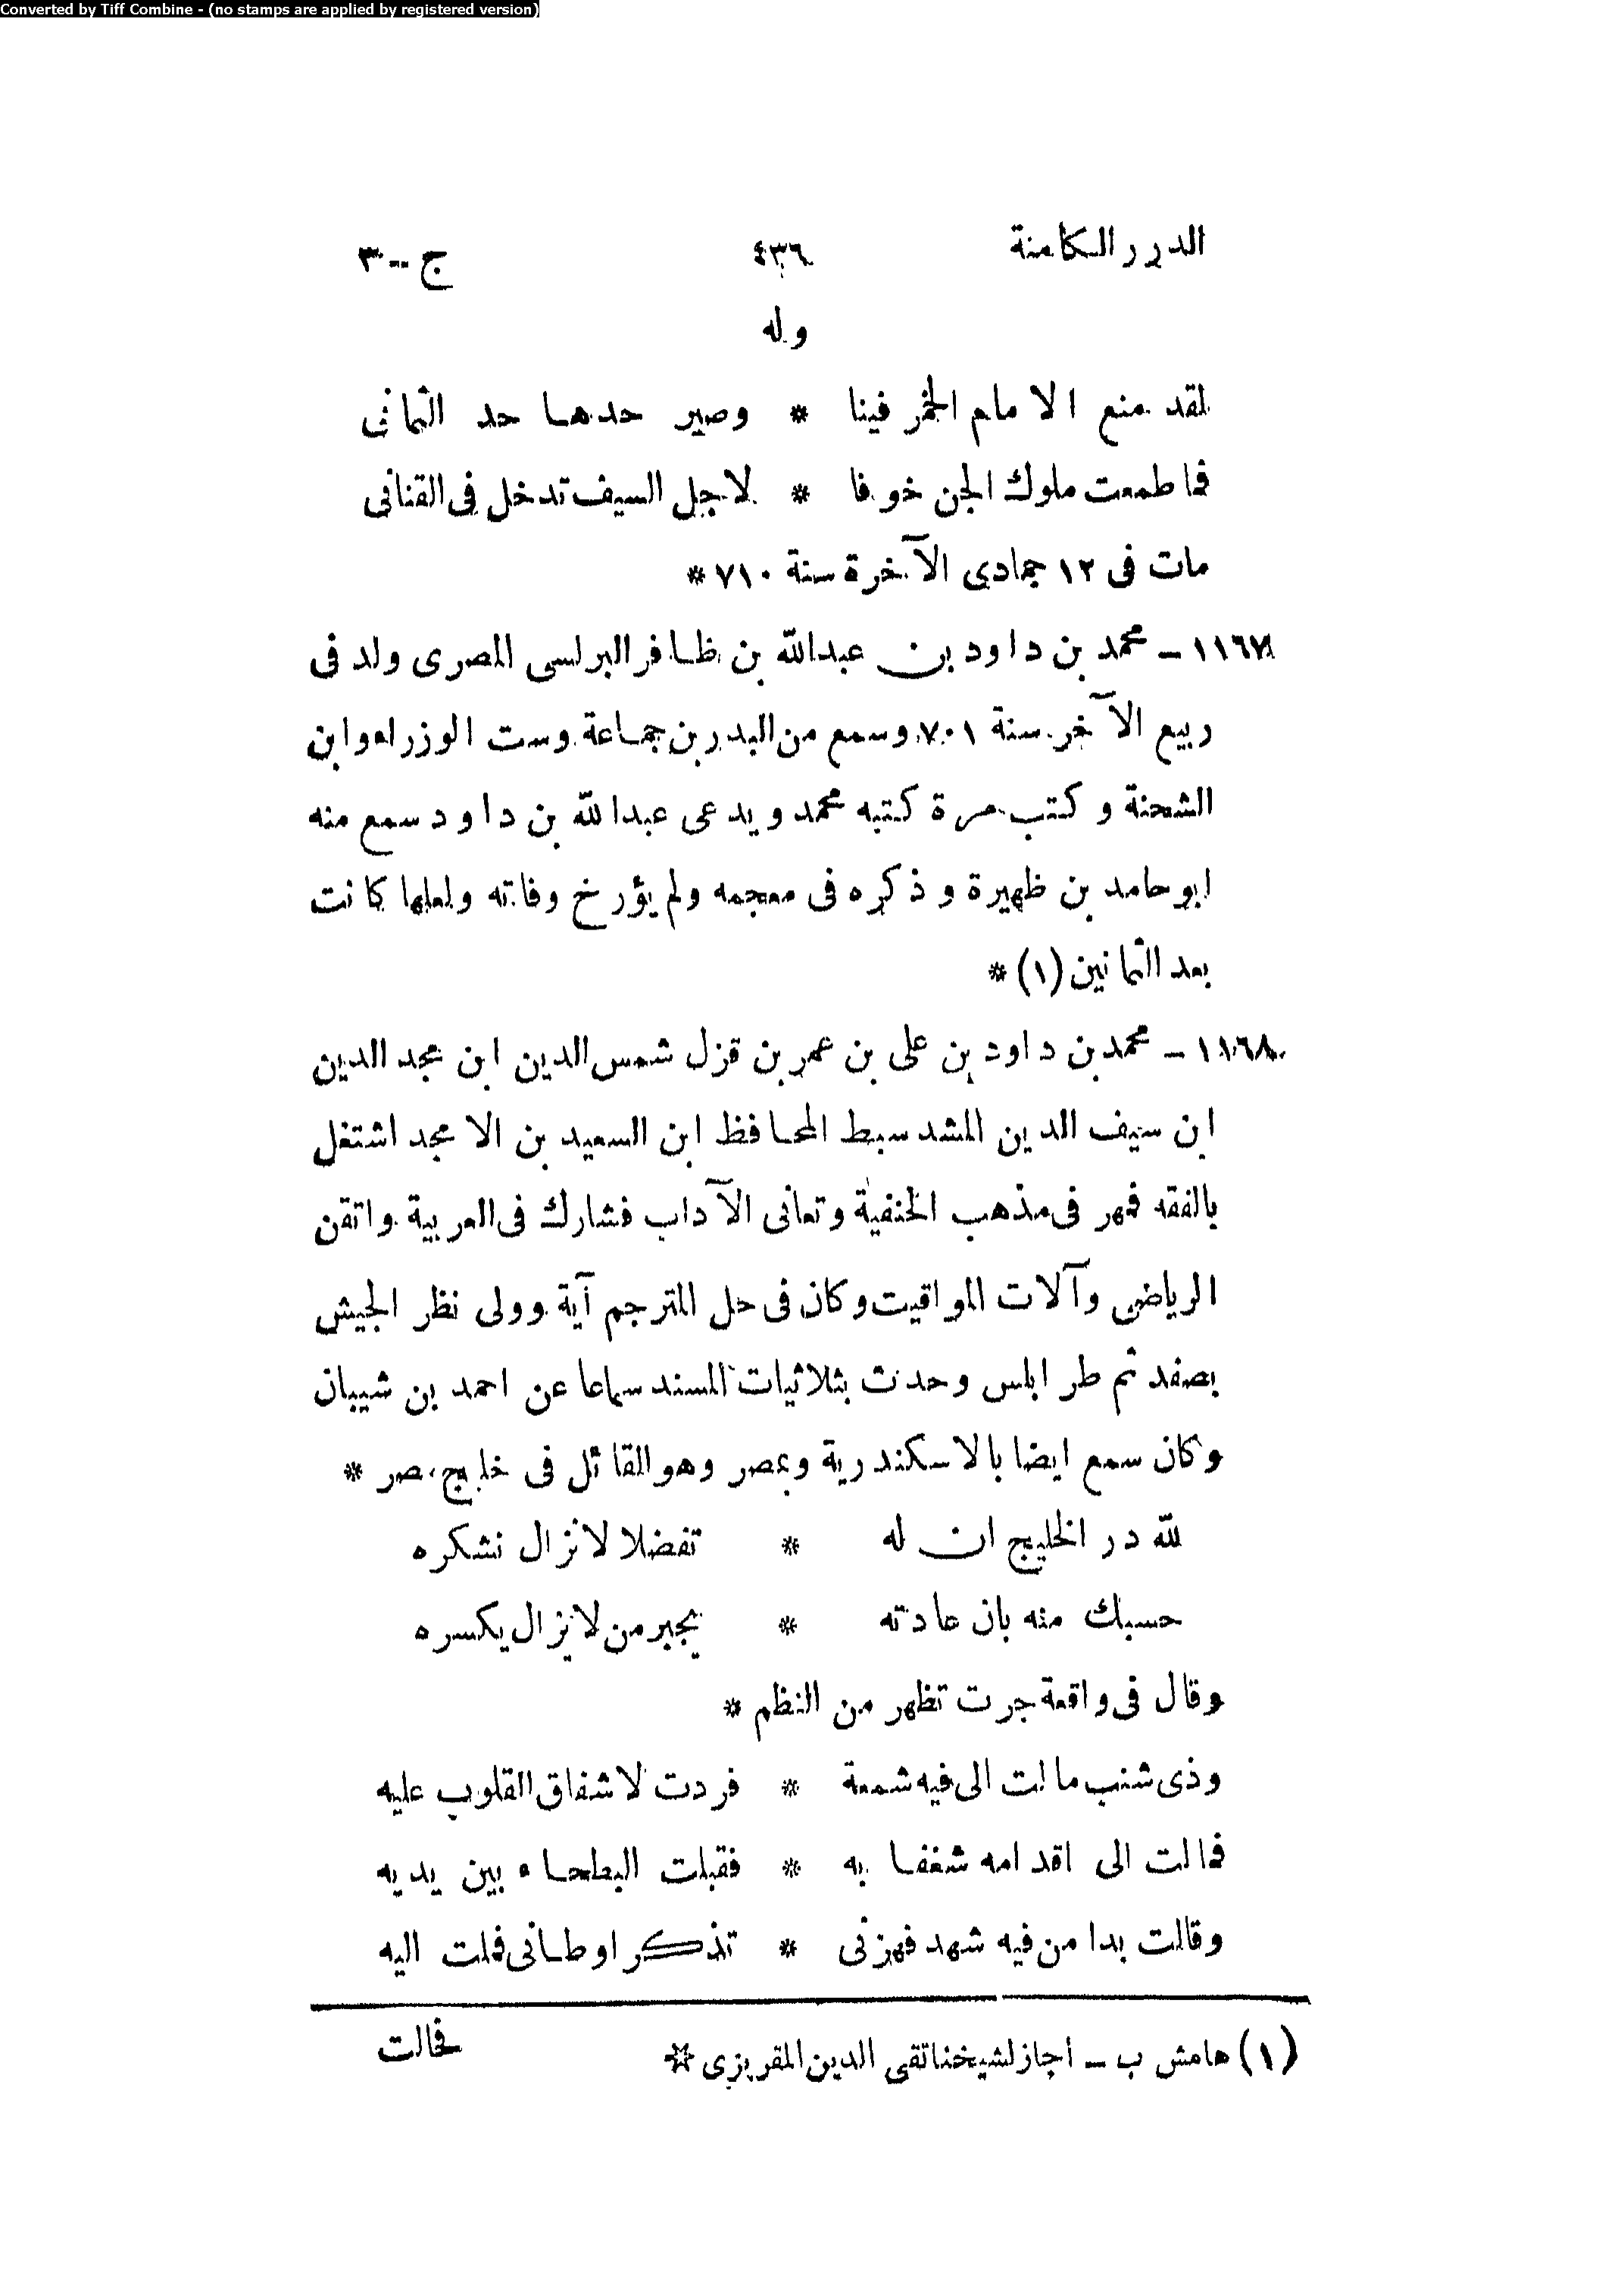 Converted by Tiff Combine - (no stamps are applied by registered version)
الدرر الكامنة ٤٣٦ ج--٣
وله
لقد منع الامام الخمر فينا * وصير حدها حد الثماني
فما طمعت ملوك الجن خوفا * لاجل السيف تدخل فى القنانى
مات فى ١٢ جمادى الآخرة سنة ٧١٠ *
١١٦٧ - محمد بن داود بن عبدالله بن ظافر البرلسى المصرى ولد فى
ربيع الآخر سنة ٧٠١ وسمع من البدر بن جماعة وست الوزراء وابن
الشحنة وكتب مرة كتبه محمد ويدعى عبدالله بن داود سمع منه
ابوحامد بن ظهيرة وذكره فى معجمه ولم يؤرخ وفاته ولعلها كانت
بعد الثمانين (١) *
١١٦٨ - محمد بن داود بن على بن عمر بن قزل شمس الدين ابن مجد الدين
ابن سيف الدين المشد سبط الحافظ ابن السعيد بن الامجد اشتغل
بالفقه فمهر فى مذهب الحنفية وتعانى الآداب فشارك فى العربية واتقن
الرياضى وآلات المواقيت وكان فى حل المترجم آية وولى نظر الجيش
بصفد ثم طرابلس وحدث بثلاثيات المسند سماعا عن احمد بن شيبان
وكان سمع ايضا بالاسكندرية وبمصر وهو القائل فى خليج مصر *
لله در الخليج ان له * تفضلا لانزال نشكره
حسبك منه بان عادته * يجبر من لايزال يكسره
وقال فى واقعة جرت تظهر من النظم *
وذى شنب مالت الى فيه شمعة * فردت لاشفاق القلوب عليه
فمالت الى اقدامه شغفا به * فقبلت البطحاء بين يديه
وقالت بدا من فيه شهد فهزنى * تذكر اوطانى فملت اليه
(١) هامش ب - اجاز لشيخنا تقى الدين المقريزى * فحالت